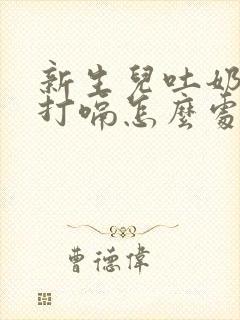 新生兒吐奶
打嗝怎麼處
曹德偉